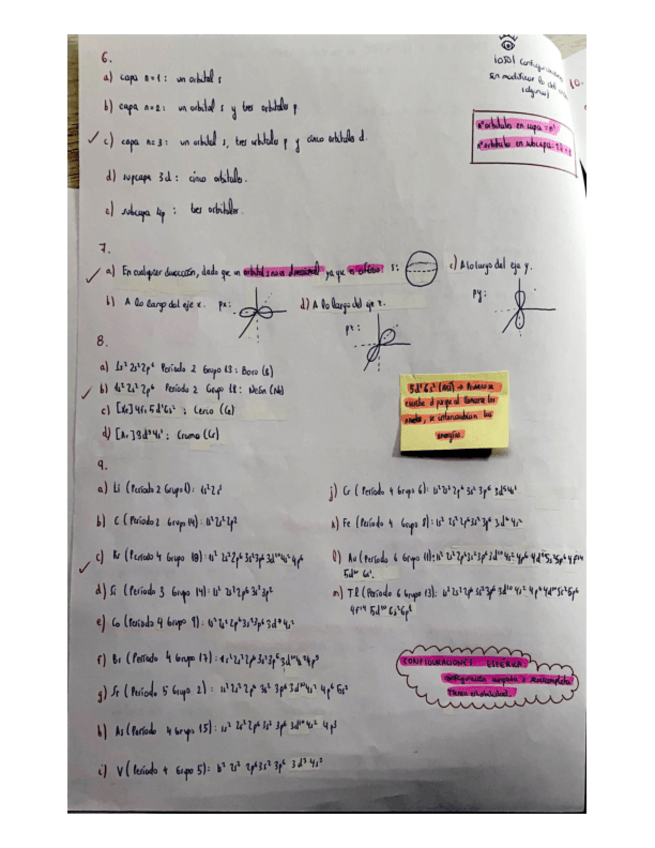 6.
a) capa n=1: un orbital s
b) capa n=2: un orbital s y tres orbitales p
c) capa n=3: un orbital s, tres orbitales p y cinco orbitales d.
d) subcapa 3d: cinco orbitales.
e) subcapa 4p: tres orbitales.
¡OJO! Configuraciones
sin modificar lo del
(algunas)
10.
nº orbitales en capa = n²
nº orbitales en subcapa =
7.
a) En cualquier dirección, dado que un orbital s no es direccional ya que es esférico. s:
b) A lo largo del eje x. px:
d) A lo largo del eje z.
pz:
c) A lo largo del eje y.
py:
8.
a) Periodo 2 Grupo 13: Boro (B)
b) 1s² 2s² 2p⁶ Periodo 2 Grupo 18: Neón (Ne)
c) [Xe] 4f 5d¹ 6s²; Cerio (Ce)
d) [Ar] 3d 4s; Cromo (Cr)
se intercambian las
energías.
9.
a) Li (Periodo 2 Grupo 1): 1s² 2s¹
b) C (Periodo 2 Grupo 14): 1s² 2s² 2p²
c) Kr (Periodo 4 Grupo 18): 1s² 2s² 2p⁶ 3s² 3p⁶ 3d¹⁰ 4s² 4p⁶
d) Si (Periodo 3 Grupo 14): 1s² 2s² 2p⁶ 3s² 3p²
e) Co (Periodo 4 Grupo 9): 1s² 2s² 2p⁶ 3s² 3p⁶ 4s²
f) Br (Periodo 4 Grupo 17): 1s² 2s² 2p⁶ 3s² 3p⁶ 3d¹⁰ 4s² 4p⁵
g) Sr (Periodo 5 Grupo 2): 1s² 2s² 2p⁶ 3s² 3p⁶ 3d¹⁰ 4s² 4p⁶ 5s²
h) As (Periodo 4 Grupo 15): 1s² 2s² 2p⁶ 3s² 3p⁶ 3d¹⁰ 4s² 4p³
i) V (Periodo 4 Grupo 5): 1s² 2s² 2p⁶ 3s² 3p⁶ 3d³ 4s²
j) Cr (Periodo 4 Grupo 6): 1s² 2s² 2p⁶ 3s² 3p⁶
k) Fe (Periodo 4 Grupo 8): 1s² 2s² 2p⁶ 3s² 3p⁶ 3d⁶ 4s²
l) Au (Periodo 6 Grupo 11): 1s² 2s² 2p⁶ 3s² 3p⁶ 3d¹⁰ 4s² 4p⁶ 4d¹⁰ 5s² 5p⁶ 4f¹⁴
5d¹⁰ 6s¹.
m) Tl (Periodo 6 Grupo 13): 1s² 2s² 2p⁶ 3s² 3p⁶ 3d¹⁰ 4s² 4p⁶ 4d¹⁰ 5s² 5p⁶
4f¹⁴ 5d¹⁰ 6s² 6p¹
CONFIGURACIONES ESFÉRICA:
configuración o semicompleta
tienen estabilidad.